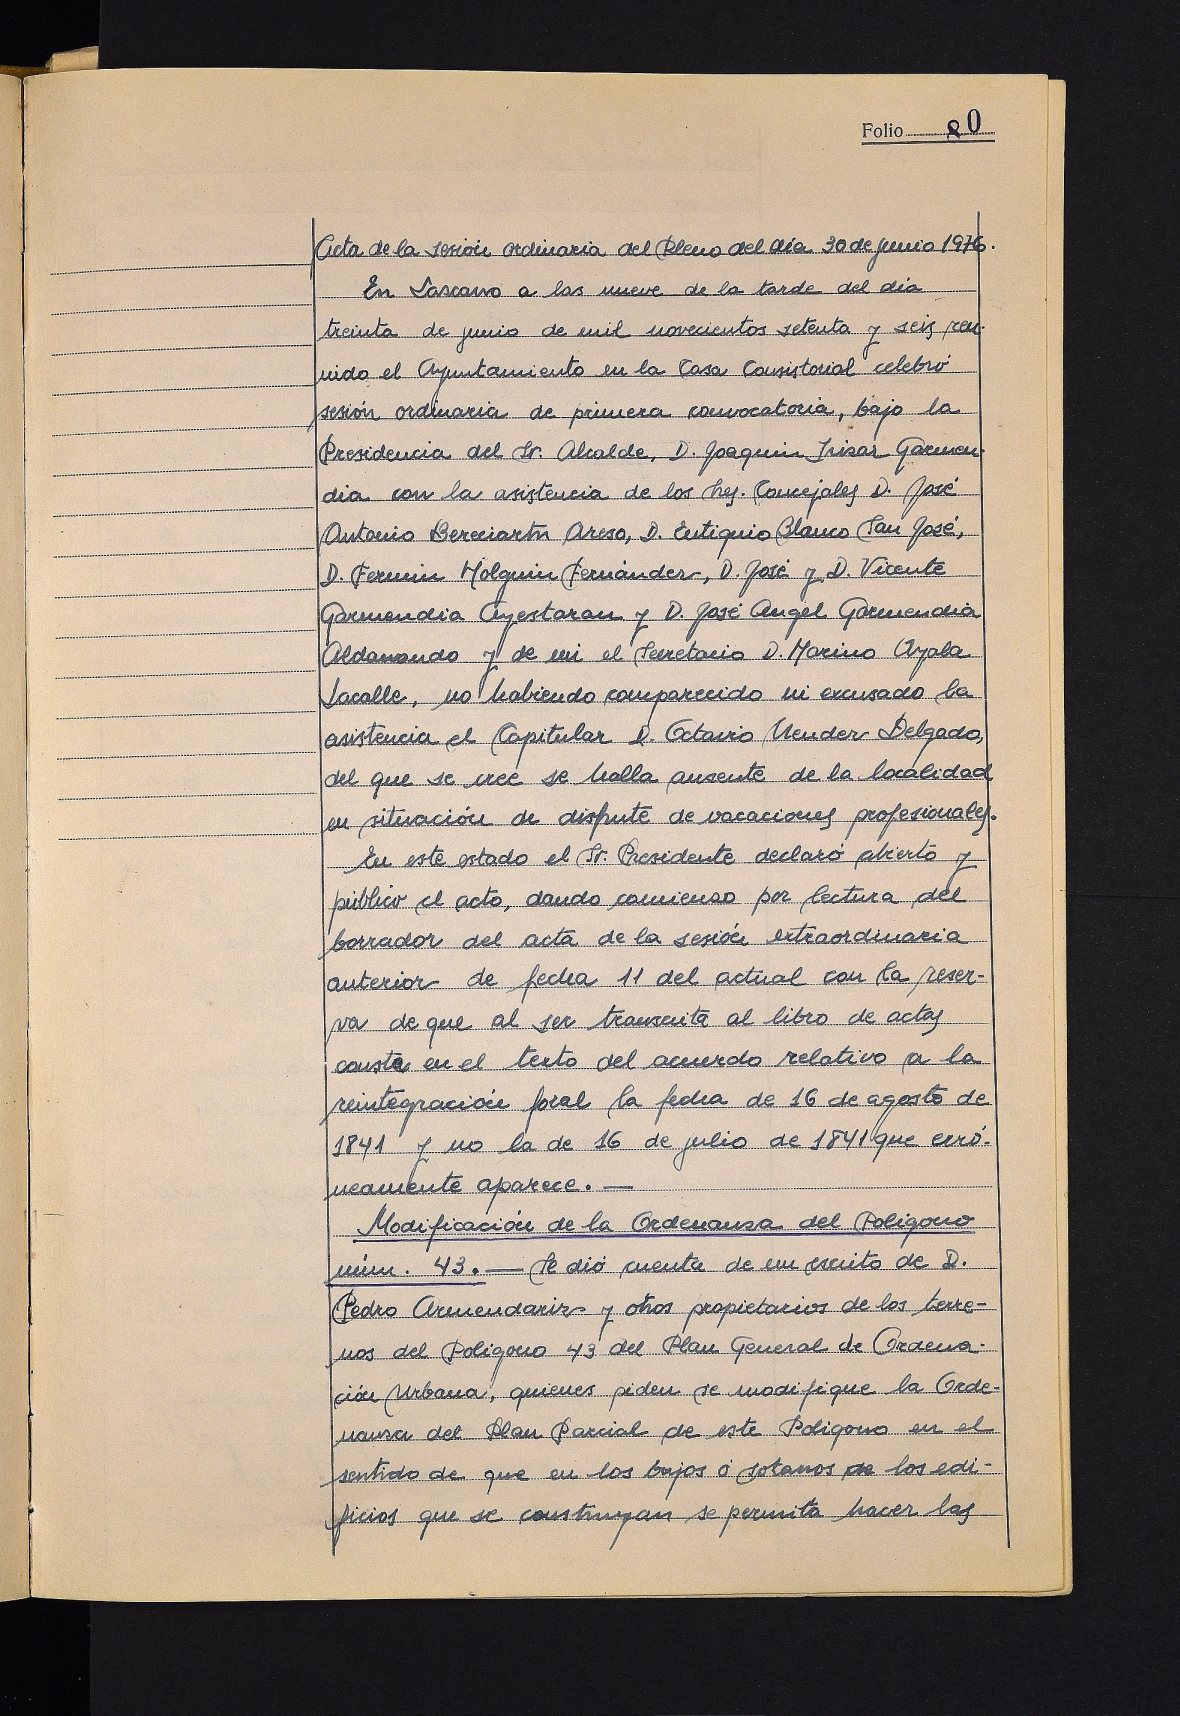 Folio 80
Acta de la sesión ordinaria del Pleno del día 30 de junio 1976.
En Lascano a las nueve de la tarde del día
treinta de junio de mil novecientos setenta y seis, reu-
nido el Ayuntamiento en la Casa Consistorial celebró
sesión ordinaria de primera convocatoria, bajo la
Presidencia del Sr. Alcalde, D. Joaquin Irizar Garmen-
dia con la asistencia de los Sres. Concejales D. José
Antonio Berciartu Areso, D. Eutiquio Blanco San José,
D. Fermin Holguin Fernández, D. José y D. Vicente
Garmendia Ayestaran y D. José Angel Garmendia
Aldanondo y de mi el Secretario D. Marino Ayala
Lacalle, no habiendo comparecido ni excusado la
asistencia el Capitular D. Octavio Mendez Delgado,
del que se cree se halla ausente de la localidad
en situación de disfrute de vacaciones profesionales.
En este estado el Sr. Presidente declaró abierto y
público el acto, dando comienzo por lectura del
borrador del acta de la sesión extraordinaria
anterior de fecha 11 del actual con la reser-
va de que al ser transcrita al libro de actas
conste en el texto del acuerdo relativo a la
reintegración foral la fecha de 16 de agosto de
1841 y no la de 16 de julio de 1841 que erró-
neamente aparece. —
Modificación de la Ordenanza del Poligono
núm. 43. — Se dió cuenta de un escrito de D.
Pedro Armendariz y otros propietarios de los terre-
nos del Poligono 43 del Plan General de Ordena-
ción Urbana, quienes piden se modifique la Orde-
nanza del Plan Parcial de este Poligono en el
sentido de que en los bajos ó sotanos de los edi-
ficios que se construyan se permita hacer las